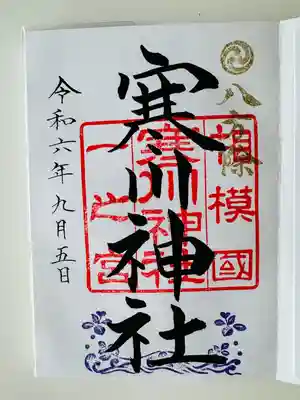 八方除
寒川神社
相模國
寒川神社
一之宮
令和六年九月五日